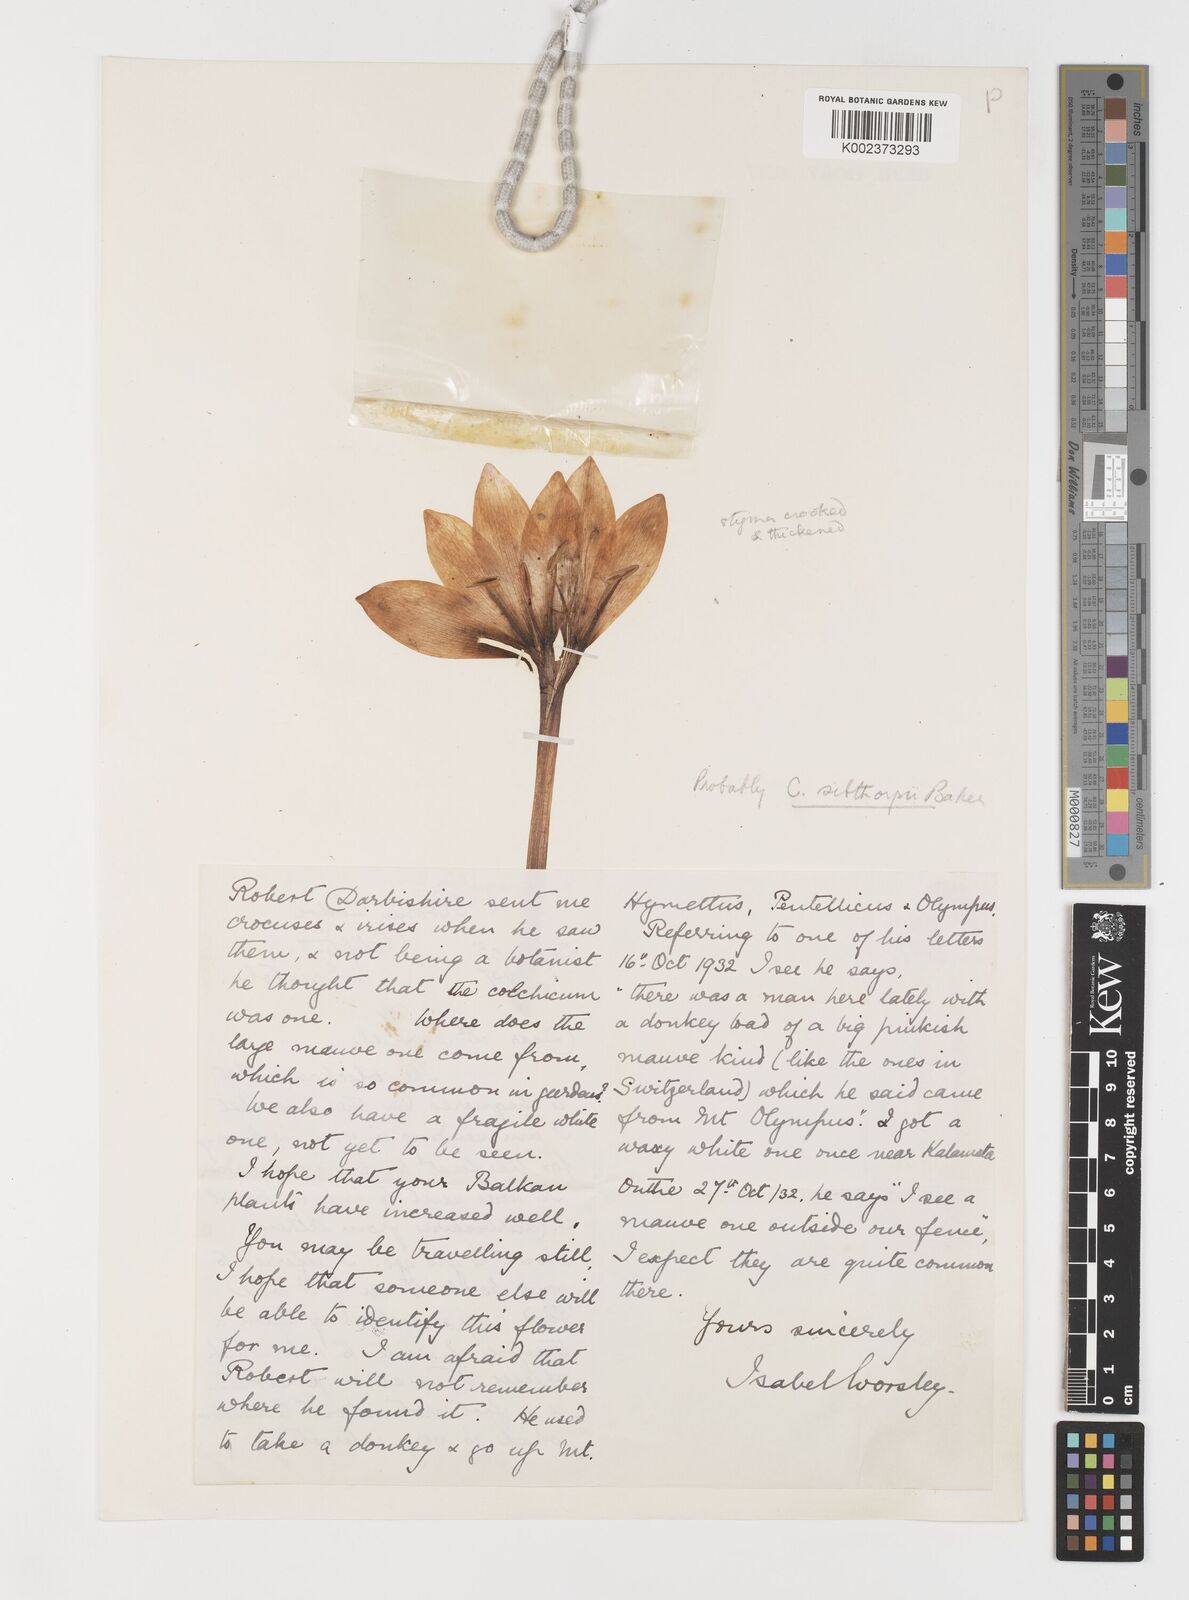 ROYAL BOTANIC GARDENS KEW
K002373293
P
stigmas crooked
& thickened
Probably C. sibthorpii Baker
Robert Darbishire sent me
crocuses & irises when he saw
them, & not being a botanist
he thought that the colchicum
was one. Where does the
large mauve one come from,
which is so common in gardens?
We also have a fragile white
one, not yet to be seen.
I hope that your Balkan
plants have increased well.
You may be travelling still,
I hope that someone else will
be able to identify this flower
for me. I am afraid that
Robert will not remember
where he found it. He used
to take a donkey & go up Mt.
Hymettus, Pentellicus & Olympus.
Referring to one of his letters
16th Oct 1932 I see he says,
"there was a man here lately with
a donkey load of a big pinkish
mauve kind (like the ones in
Switzerland) which he said came
from Mt Olympus". I got a
waxy white one once near Kalamata
On the 27th Oct /32. he says "I see a
mauve one outside our fence",
I expect they are quite common
there.
Yours sincerely
Isabel Worsley.
inches
centimeters
Density
Don Williams
M000827
Kew
Royal Botanic Gardens
copyright reserved
0 1 2 3 4 5 6 7 8 9 10
cm